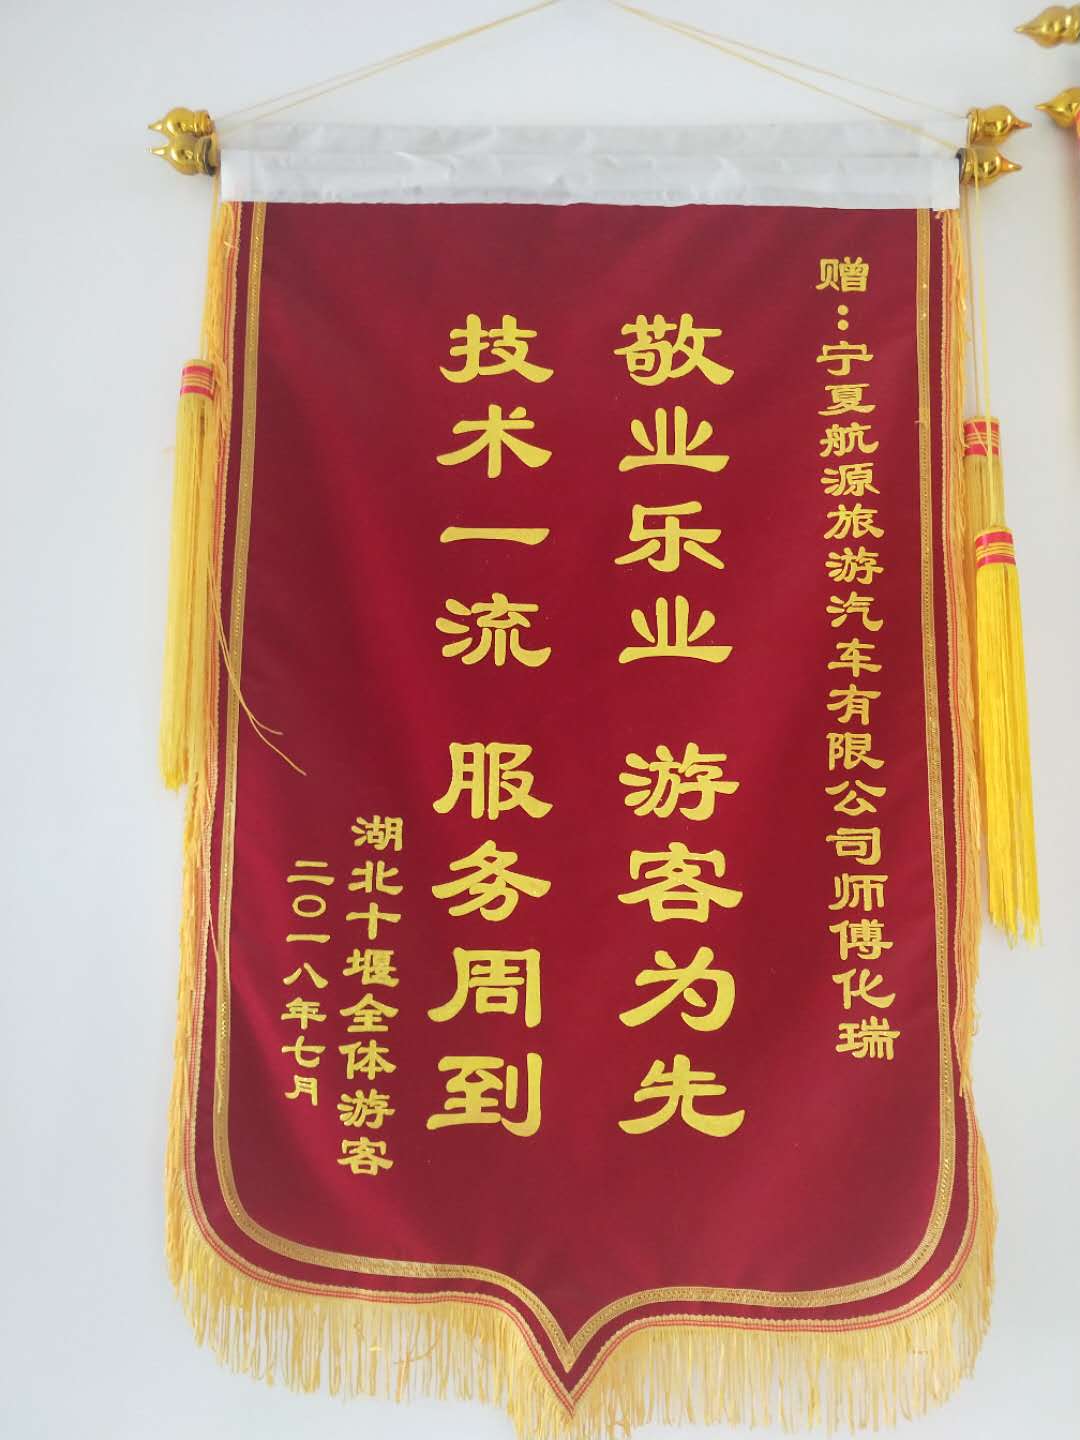 赠：宁夏航源旅游汽车有限公司师傅化瑞
敬业乐业 游客为先
技术一流 服务周到
湖北十堰全体游客
二〇一八年七月